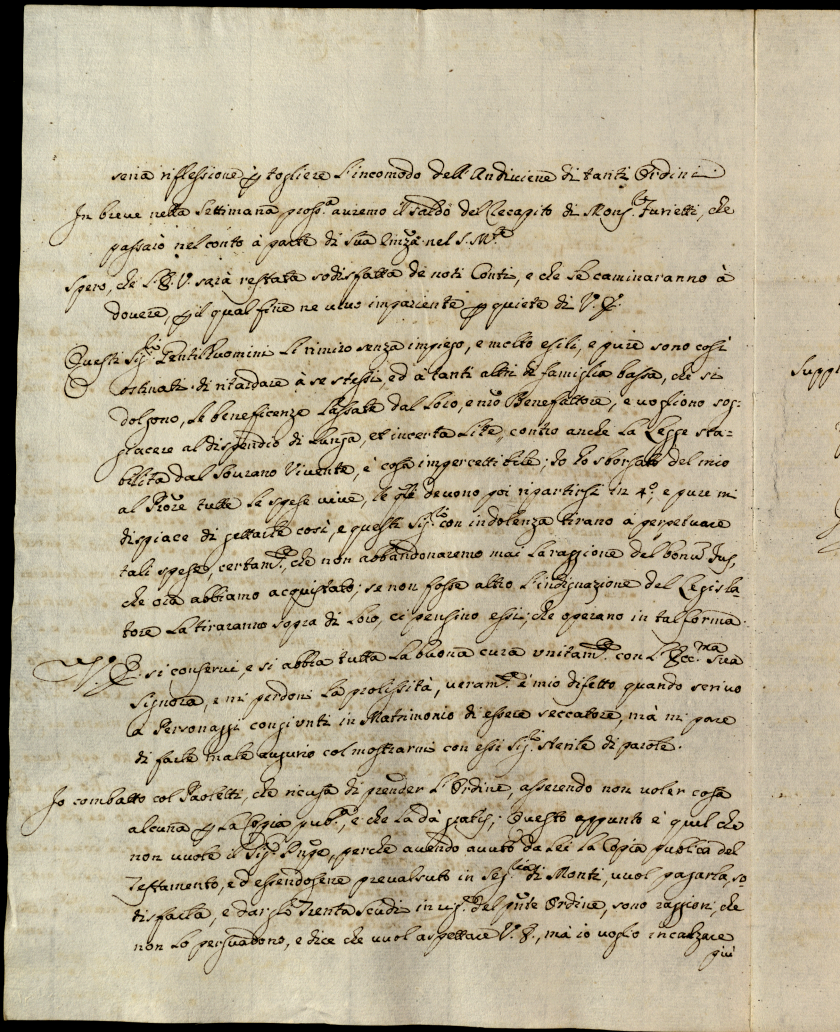 seria riflessione p togliere l'incomodo dell'Andiviene di tanti Ordini
In breve nella Settimana pross.ª avremo il saldo del Recapito di Mons.r Furietti, che
passarò nel conto à parte di Sua Emza nel S. M.te
Spero, che l'E. V. sarà restata sodisfatta de noti Conti, e che se caminaranno à
dovere, p il qual fine ne vivo impaziente p quiete di V. E.
Questi Sig.ri Gentilhuomini li rimiro senza impiego, e molto esili, e pure sono così
ostinati di ritardare à se stessi, ed à tanti altri di famiglia bassa, che si
dolgono, le beneficenze lassate dal loro, e nro Benefattore, e vogliono sog-
giacere al dispendio di lunga, et incerta Lite, contro anche la Legge sta-
bilita dal Sovrano Vivente, è cosa impercettibile; Io ho sborsato del mio
al Priore tutte le spese vive, le qli devono poi ripartirsi in 4.º, e pure mi
dispiace di gettarle così, e questi Sig.ri con indolenza tirano à perpetuare
tali spese, certam.te, che non abbandonaremo mai la raggione del bonu Jus,
che ora abbiamo acquistato; se non fosse altro l'indignazione del Legisla-
tore la tiraranno sopra di loro, ci pensino essi, che operano in tal forma.
V. E. si conservi, e si abbia tutta la buona cura unitam.te con l'Ecc.ma Sua
Signora, e mi perdoni la prolissità, veram.te è mio difetto quando scrivo
a Personaggi congionti in Matrimonio di essere seccatore, mà mi pare
di farle male augurio col mostrarmi con essi Sig.ri sterile di parole.
Io combatto col Paoletti, che ricusa di prender l'Ordine, asserendo non voler cosa
alcuna p la Copia pub.ª, e che la dà gratis; Questo appunto è quel che
non vuole il Sig.r Enge, perche avendo avuto da Lei la Copia publica del
Testamento, ed essendosene prevalsuto in Seg.ria di Monti, vuol pagarla, so-
disfarla, e darglo Trenta Scudi in vig.e del pnte Ordine, sono raggioni, che
non lo persuadono, e dice che vuol aspettare V. E., mà io voglio incalzare
più
Suppl